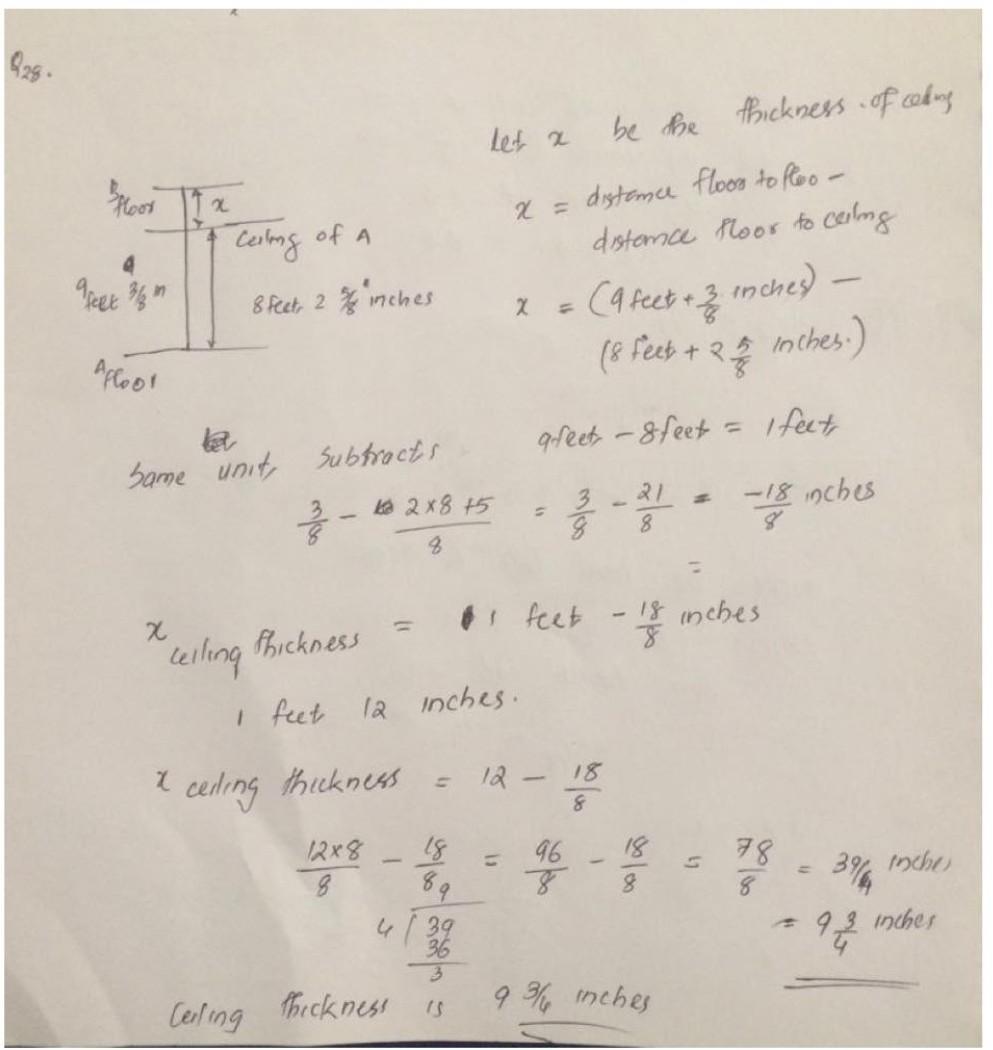 Q28.
Let x be the thickness of ceiling
x = distance floor to floo -
distance floor to ceiling
B floor
x
Ceiling of A
9 feet 3/8 in
8 feet, 2 5/8 inches
A floor
x = (9 feet + 3/8 inches) -
(8 feet + 2 5/8 inches.)
same unit, subtracts 9 feet - 8 feet = 1 feet
3/8 - 2x8+5/8 = 3/8 - 21/8 = -18/8 inches
=
x ceiling thickness = 1 feet - 18/8 inches
1 feet 12 inches.
x ceiling thickness = 12 - 18/8
12x8/8 - 18/8 = 96/8 - 18/8 = 78/8 = 39/4 inches
9
4 ) 39
36
3
= 9 3/4 inches
Ceiling thickness is 9 3/4 inches